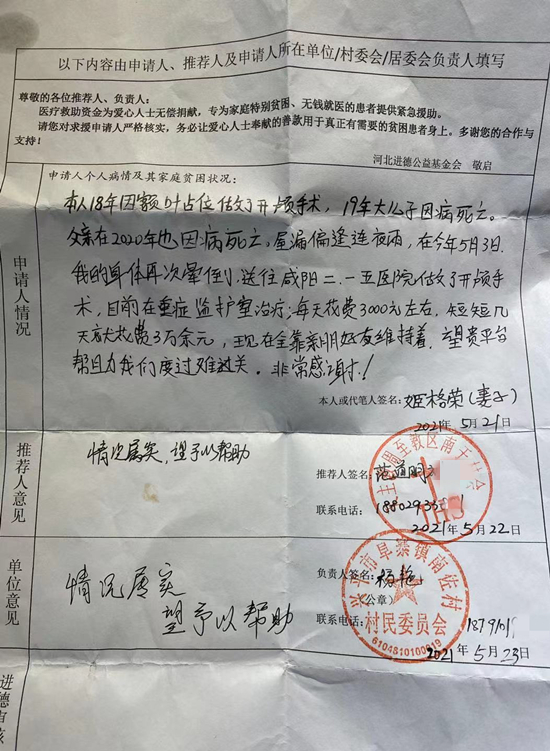 以下内容由申请人、推荐人及申请人所在单位/村委会/居委会负责人填写
尊敬的各位推荐人、负责人：
医疗救助资金为爱心人士无偿捐献，专为家庭特别贫困、无钱就医的患者提供紧急援助。
请您对求援申请人严格核实，务必让爱心人士奉献的善款用于真正有需要的贫困患者身上。多谢您的合作与
支持！
河北进德公益基金会 敬启
申请人情况
申请人个人病情及其家庭贫困状况：
本人18年因额叶占位做了开颅手术，19年大儿子因病死亡。
父亲在2020年也因病死亡，屋漏偏逢连夜雨，在今年5月3日
我的身体再次晕倒，送往咸阳二一五医院做了开颅手
术，目前在重症监护室治疗；每天花费3000元左右，短短几
天就花费3万余元，现在全靠亲朋好友维持着，望贵平台
帮助我们度过难关。非常感谢！
本人或代笔人签名：姬格荣（妻子）
2021年5月21日
推荐人意见
情况属实，望予以帮助
推荐人签名：范道明
联系电话：18802935
2021年5月22日
单位意见
情况属实
望予以帮助
负责人签名：杨艳
（公章）
联系电话：1879101
2021年5月23日
兴平市阜寨镇南佐村
村民委员会
6104810100019
周至教区南
进德审核